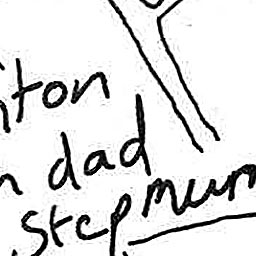 iton
n dad
stepmum